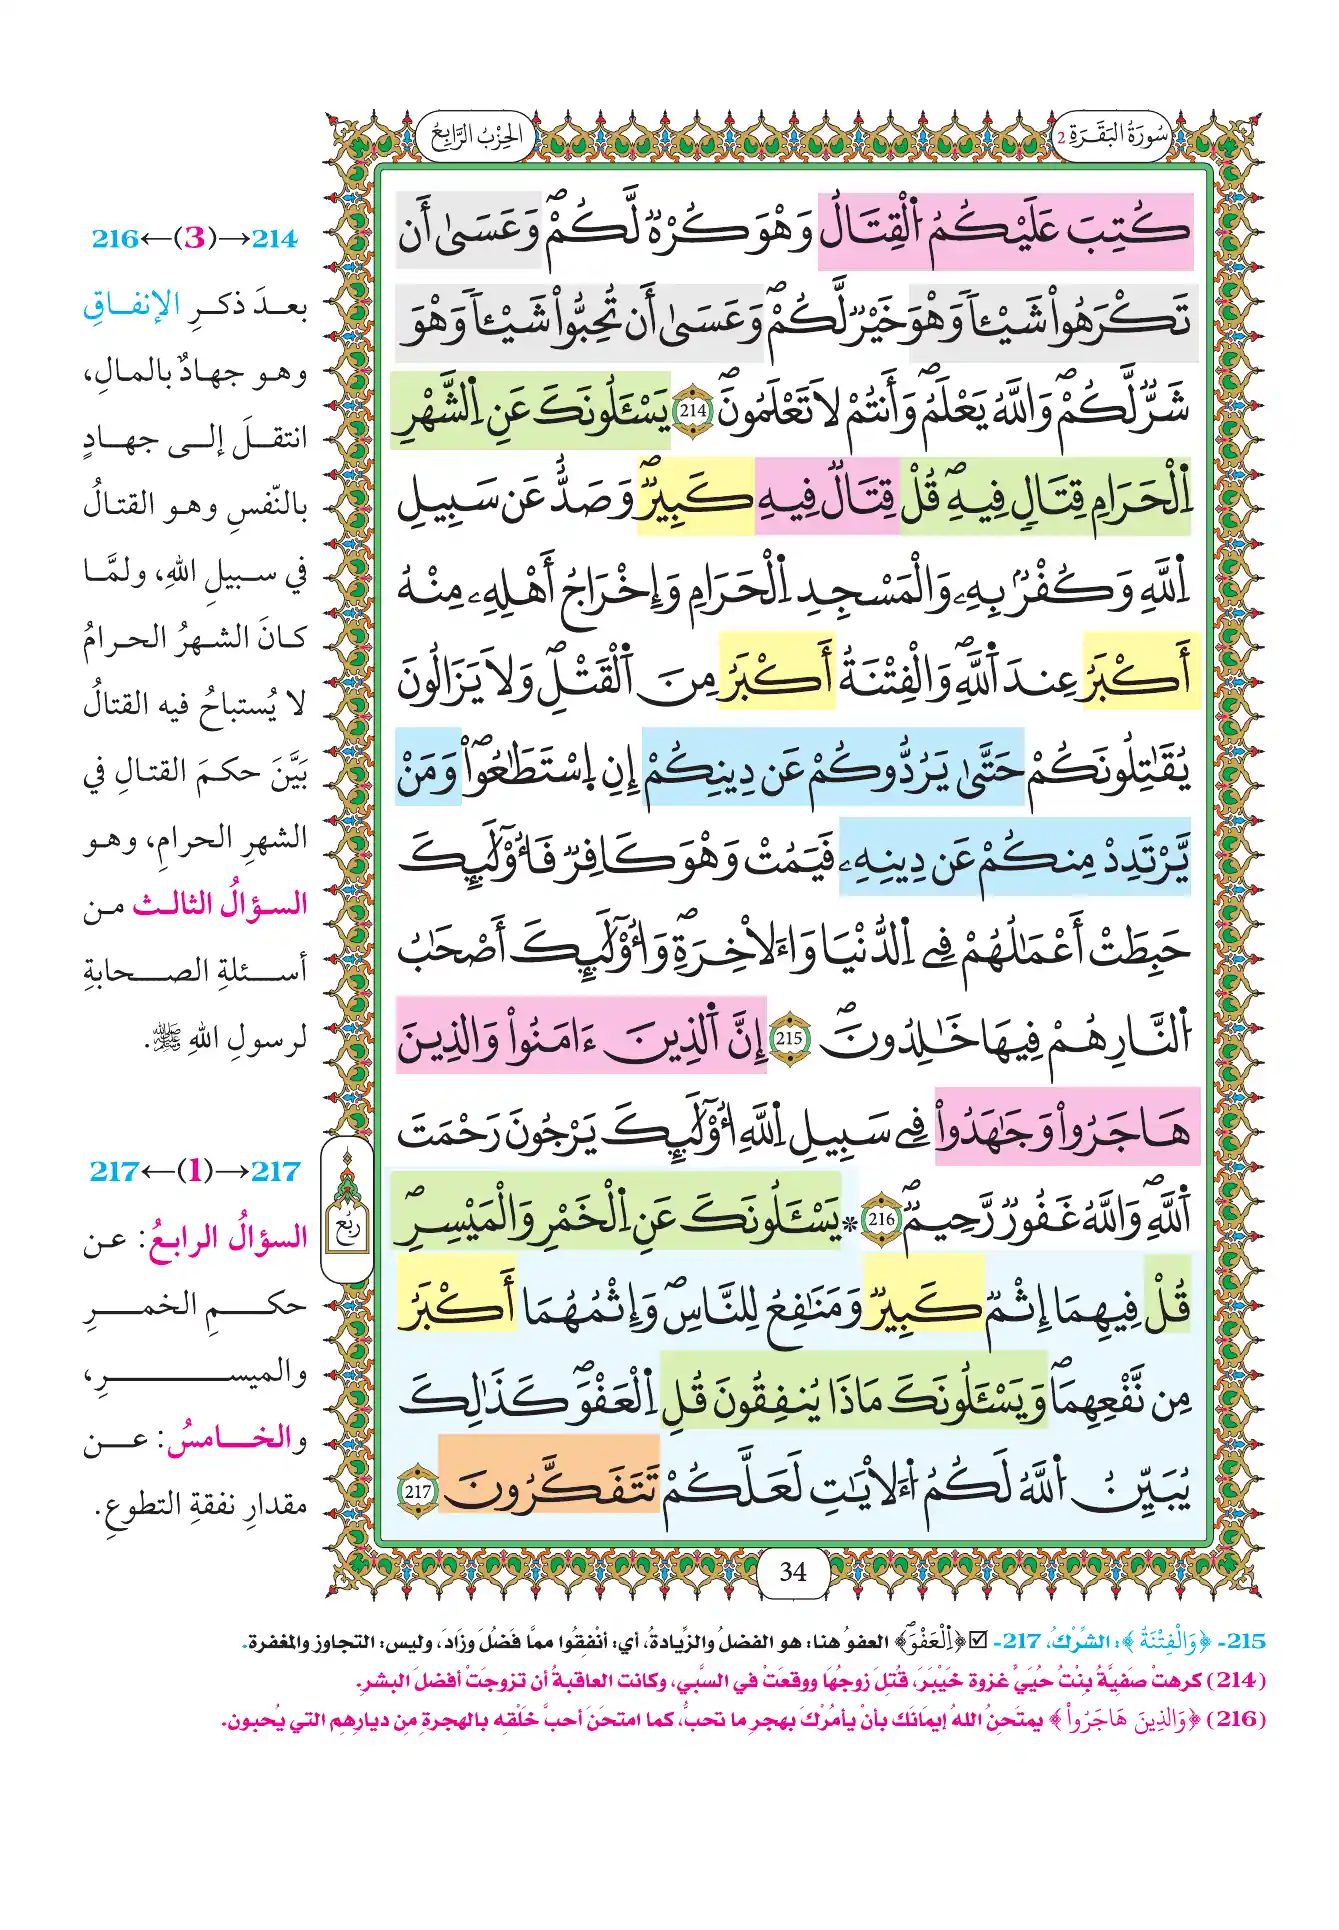 سُورَةُ البَقَرَةِ 2
الحِزْبُ الرَّابِعُ
كُتِبَ عَلَيْكُمُ اُ۬لْقِتَالُ وَهُوَ كُرْهٞ لَّكُمْۖ وَعَس۪ىٰٓ أَن
تَكْرَهُواْ شَيْـٔاٗ وَهُوَ خَيْرٞ لَّكُمْۖ وَعَس۪ىٰٓ أَن تُحِبُّواْ شَيْـٔاٗ وَهُوَ
شَرّٞ لَّكُمْۖ وَاللَّهُ يَعْلَمُۖ وَأَنتُمْ لَا تَعْلَمُونَۖ 214 يَسْـَٔلُونَكَ عَنِ اِ۬لشَّهْرِ
اِ۬لْحَرَامِ قِتَالٖ فِيهِۖ قُلْ قِتَالٞ فِيهِ كَبِيرٞۖ وَصَدٌّ عَن سَبِيلِ
اِ۬للَّهِ وَكُفْرُۢ بِهِۦ وَالْمَسْجِدِ اِ۬لْحَرَامِ وَإِخْرَاجُ أَهْلِهِۦ مِنْهُ
أَكْبَرُ عِندَ اَ۬للَّهِۖ وَالْفِتْنَةُ أَكْبَرُ مِنَ اَ۬لْقَتْلِۖ وَلَا يَزَالُونَ
يُقَٰتِلُونَكُمْ حَتَّىٰ يَرُدُّوكُمْ عَن دِينِكُمْ إِنِ اِ۪سْتَطَٰعُواْۖ وَمَنْ
يَّرْتَدِدْ مِنكُمْ عَن دِينِهِۦ فَيَمُتْ وَهُوَ كَافِرٞ فَأُوْلَٰٓئِكَ
حَبِطَتْ أَعْمَٰلُهُمْ فِے اِ۬لدُّنْيَا وَالَاخِرَةِۖ وَأُوْلَٰٓئِكَ أَصْحَٰبُ
اُ۬لنَّارِ هُمْ فِيهَا خَٰلِدُونَۖ 215 إِنَّ اَ۬لذِينَ ءَامَنُواْ وَالذِينَ
هَاجَرُواْ وَجَٰهَدُواْ فِے سَبِيلِ اِ۬للَّهِ أُوْلَٰٓئِكَ يَرْجُونَ رَحْمَتَ
اَ۬للَّهِۖ وَاللَّهُ غَفُورٞ رَّحِيمٞۖ 216 * يَسْـَٔلُونَكَ عَنِ اِ۬لْخَمْرِ وَالْمَيْسِرِۖ
قُلْ فِيهِمَا إِثْمٞ كَبِيرٞ وَمَنَٰفِعُ لِلنَّاسِۖ وَإِثْمُهُمَا أَكْبَرُ
مِن نَّفْعِهِمَاۖ وَيَسْـَٔلُونَكَ مَاذَا يُنفِقُونَ قُلِ اِ۬لْعَفْوَۖ كَذَٰلِكَ
يُبَيِّنُ اُ۬للَّهُ لَكُمُ اُ۬لَايَٰتِ لَعَلَّكُمْ تَتَفَكَّرُونَ 217
216←(3)→214
بعدَ ذكرِ الإنفاقِ
وهو جهادٌ بالمالِ،
انتقلَ إلى جهادٍ
بالنّفسِ وهو القتالُ
في سبيلِ اللهِ، ولمَّا
كانَ الشهرُ الحرامُ
لا يُستباحُ فيه القتالُ
بَيَّنَ حكمَ القتالِ في
الشهرِ الحرامِ، وهو
السؤالُ الثالث من
أسئلةِ الصحابةِ
لرسولِ اللهِ ﷺ.
217←(1)→217
السؤالُ الرابعُ: عن
حكمِ الخمرِ
والميسرِ،
والخامسُ: عن
مقدارِ نفقةِ التطوعِ.
رُبُع
34
215- ﴿وَالْفِتْنَةُ﴾: الشِّرْكُ، 217- ☑ ﴿اِ۬لْعَفْوَۖ﴾ العفوُ هنا: هو الفضلُ والزِّيادةُ، أي: أنْفِقُوا ممَّا فَضُلَ وزَادَ، وليس: التجاوز والمغفرة.
(214) كرهتْ صَفِيَّةُ بِنْتُ حُيَيٍّ غزوة خَيْبَرَ، قُتِلَ زوجُهَا ووقعَتْ في السَّبي، وكانت العاقبةُ أن تزوجَتْ أفضلَ البشرِ.
(216) ﴿وَالذِينَ هَاجَرُواْ﴾ يمتَحِنُ اللهُ إيمانَك بأنْ يأمُرْكَ بهجرِ ما تحبُّ، كما امتحنَ أحبَّ خَلْقِه بالهجرةِ مِن ديارِهِم التي يُحبون.